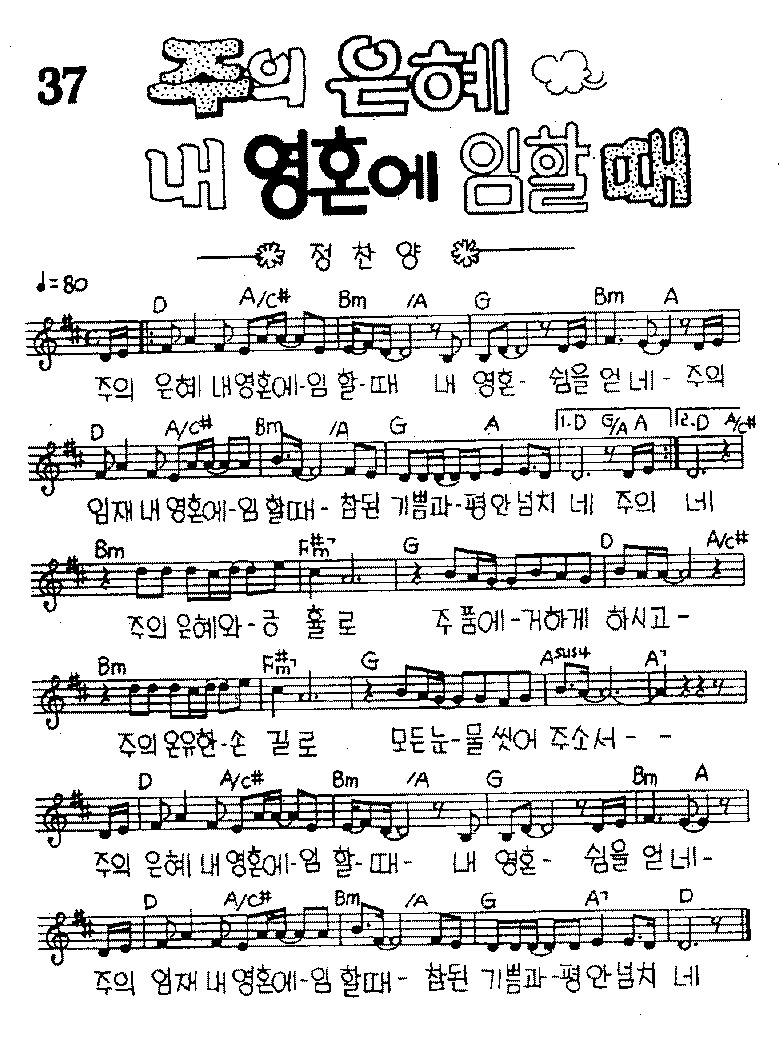 37
주의 은혜
내 영혼에 임할 때
정 찬 양
♩=80
D A/C# Bm /A G Bm A
주의 은혜 내영혼에-임 할-때 내 영혼- 쉼을 얻 네- 주의
D A/C# Bm /A G A 1.D G/A A 2.D A/C#
임재 내 영혼에-임 할때- 참된 기쁨과-평안넘치 네 주의 네
Bm F#m7 G D A/C#
주의 은혜와-긍 휼 로 주 품에-거하게 하시고-
Bm F#m7 G Asus4 A7
주의 온유한-손 길 로 모든눈-물 씻어 주소서- -
D A/C# Bm /A G Bm A
주의 은혜 내 영혼에-임 할-때- 내 영혼- 쉼을 얻 네-
D A/C# Bm /A G A7 D
주의 임재 내 영혼에-임 할때- 참된 기쁨과-평안넘치 네